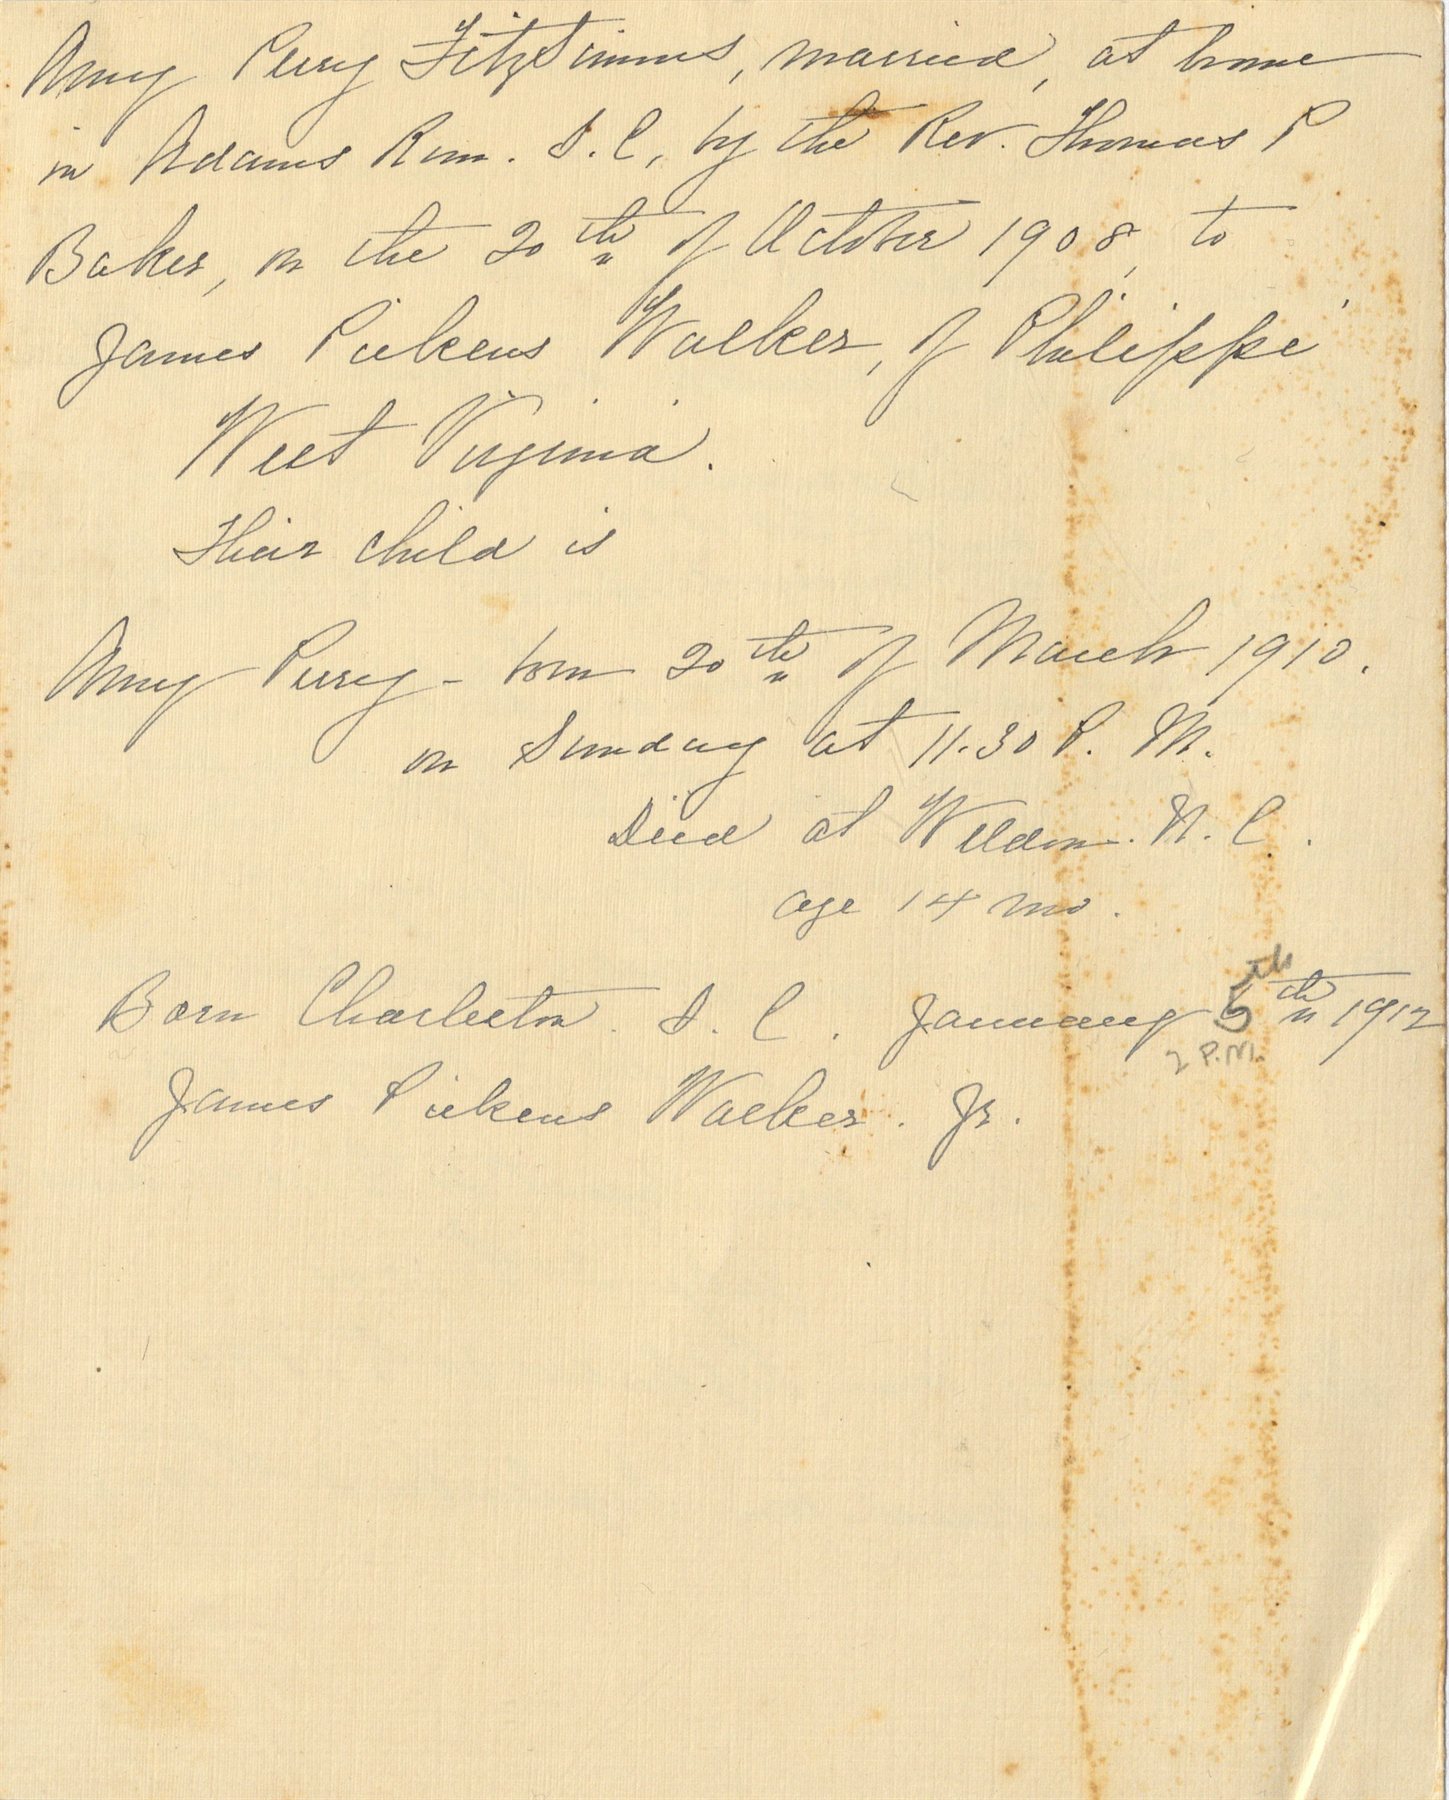 Amy Perry FitzSimons, married, at home
in Adams Run. S.C, by the Rev. Thomas P
Baker, on the 20th of October 1908, to
James Pickens Walker, of Philippi
West Virginia.
Their child is
Amy Perry - born 20th of March 1910.
on Sunday at 11.30 P. M.
Died at Weldon. N. C.
age 14 mo.
Born Charleston. S. C. January 5th th 1912
2 P.M.
James Pickens Walker. Jr.